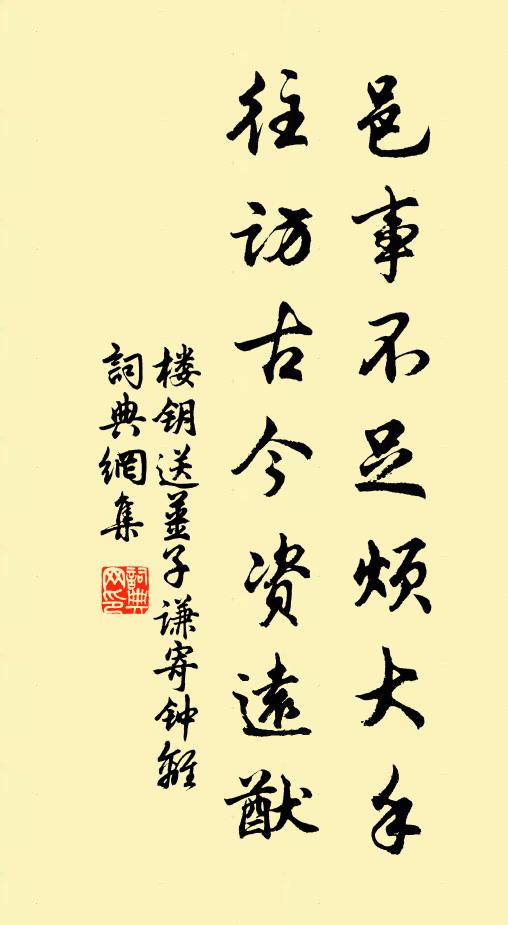 邑事不足烦大手
往访古今资遠猷
楼钥送姜子谦寄钟離
詞典網集
詞典网印